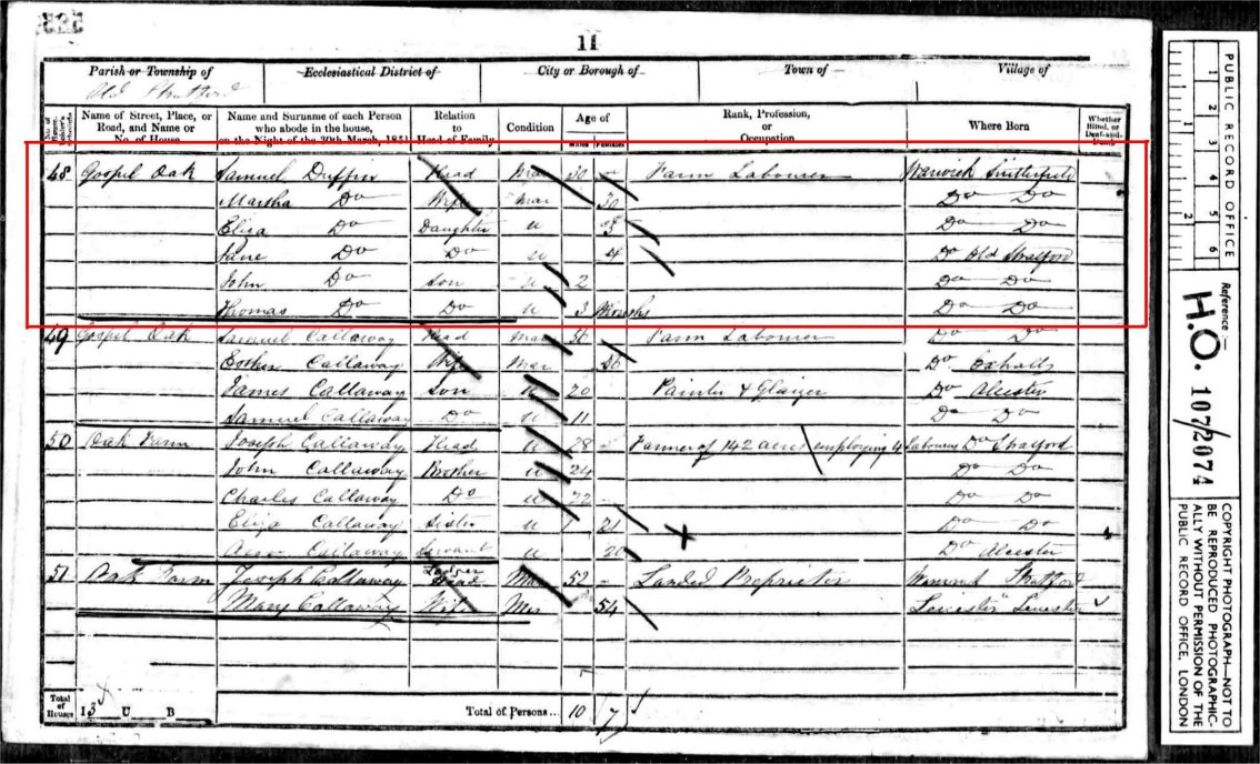 11
Parish or Township of Ecclesiastical District of City or Borough of Town of Village of
Old Stratford
Name of Street, Place, or Road, and Name or No. of House
Name and Surname of each Person who abode in the house, on the Night of the 30th March, 1851
Relation to Head of Family
Condition
Age of
Males Females
Rank, Profession, or Occupation
Where Born
Whether Blind, or Deaf-and-Dumb
48 Gospel Oak Samuel Duffin Head Mar 30 Farm Labourer Warwick Snitterfield
Martha Do Wife Mar 30 Do Do
Eliza Do Daughter u 5 Do Do
Jane Do Do u 4 Do Old Stratford
John Do Son u 2 Do Do
Thomas Do Do u 3 Months Do Do
49 Gospel Oak Samuel Callaway Head Mar Farm Labourer Do Do
Esther Callaway Wife Mar Do Exhall
James Callaway Son u 20 Painter & Glazier Do Alcester
Samuel Callaway Do u 11 Do Do
50 Oak Farm Joseph Callaway Head u 28 Farmer of 142 acres employing 4 Labourers Do Stratford
John Callaway Brother u 24 Do Do
Charles Callaway Do u 22 Do Do
Eliza Callaway Sister u 21 Do Do
Callaway Servant u 20 Do Alcester
51 Oak Farm Joseph Callaway Lodger Head Mar 52 Landed Proprietor Warwick Stratford
Mary Callaway Wife Mar 54 Leicester Leicester
Total of Houses 13 U B Total of Persons... 10 7
PUBLIC RECORD OFFICE
1 2 3 4 5 6
1 2
Reference:-
H.O. 107/2074
COPYRIGHT PHOTOGRAPH—NOT TO BE REPRODUCED PHOTOGRAPHICALLY WITHOUT PERMISSION OF THE PUBLIC RECORD OFFICE, LONDON